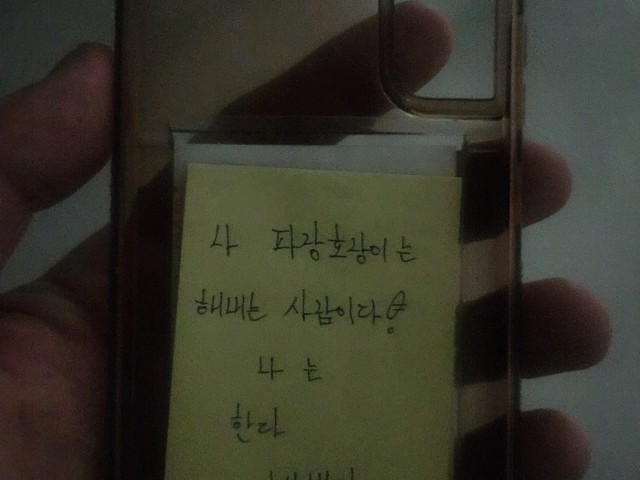 나 파랑호랑이는
해내는 사람이다!
나 는
한다